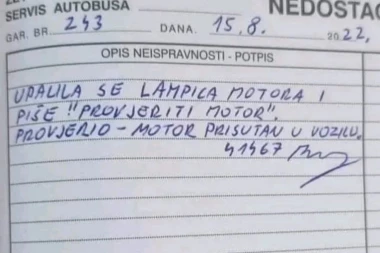 SERVIS AUTOBUSA
NEDOSTAC
GAR. BR. 243 DANA. 15.8. 2022.
OPIS NEISPRAVNOSTI - POTPIS
UPALILA SE LAMPICA MOTORA I
PIŠE "PROVJERITI MOTOR".
PROVJERIO - MOTOR PRISUTAN U VOZILU.
41467